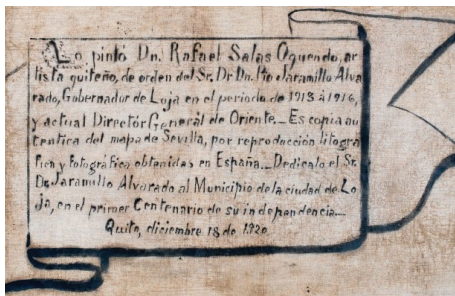 Lo pintó Dn. Rafael Salas Oquendo, ar
tista quiteño, de orden del Sr. Dr. Dn. Pío Jaramillo Alva
rado, Gobernadur de Loja en el periodo de 1913 à 1916,
y actual Diréctor General de Oriente._ Es copia au
tentica del mapa de Sevilla, por reproducción litogra
fica y fotográfica obtenidas en España._ Dedicalo el Sr.
Dr. Jaramillo Alvarado al Municipio de la ciudad de Lo
ja, en el primer Centenario de su independencia._
Quito, diciembre 18 de 1920